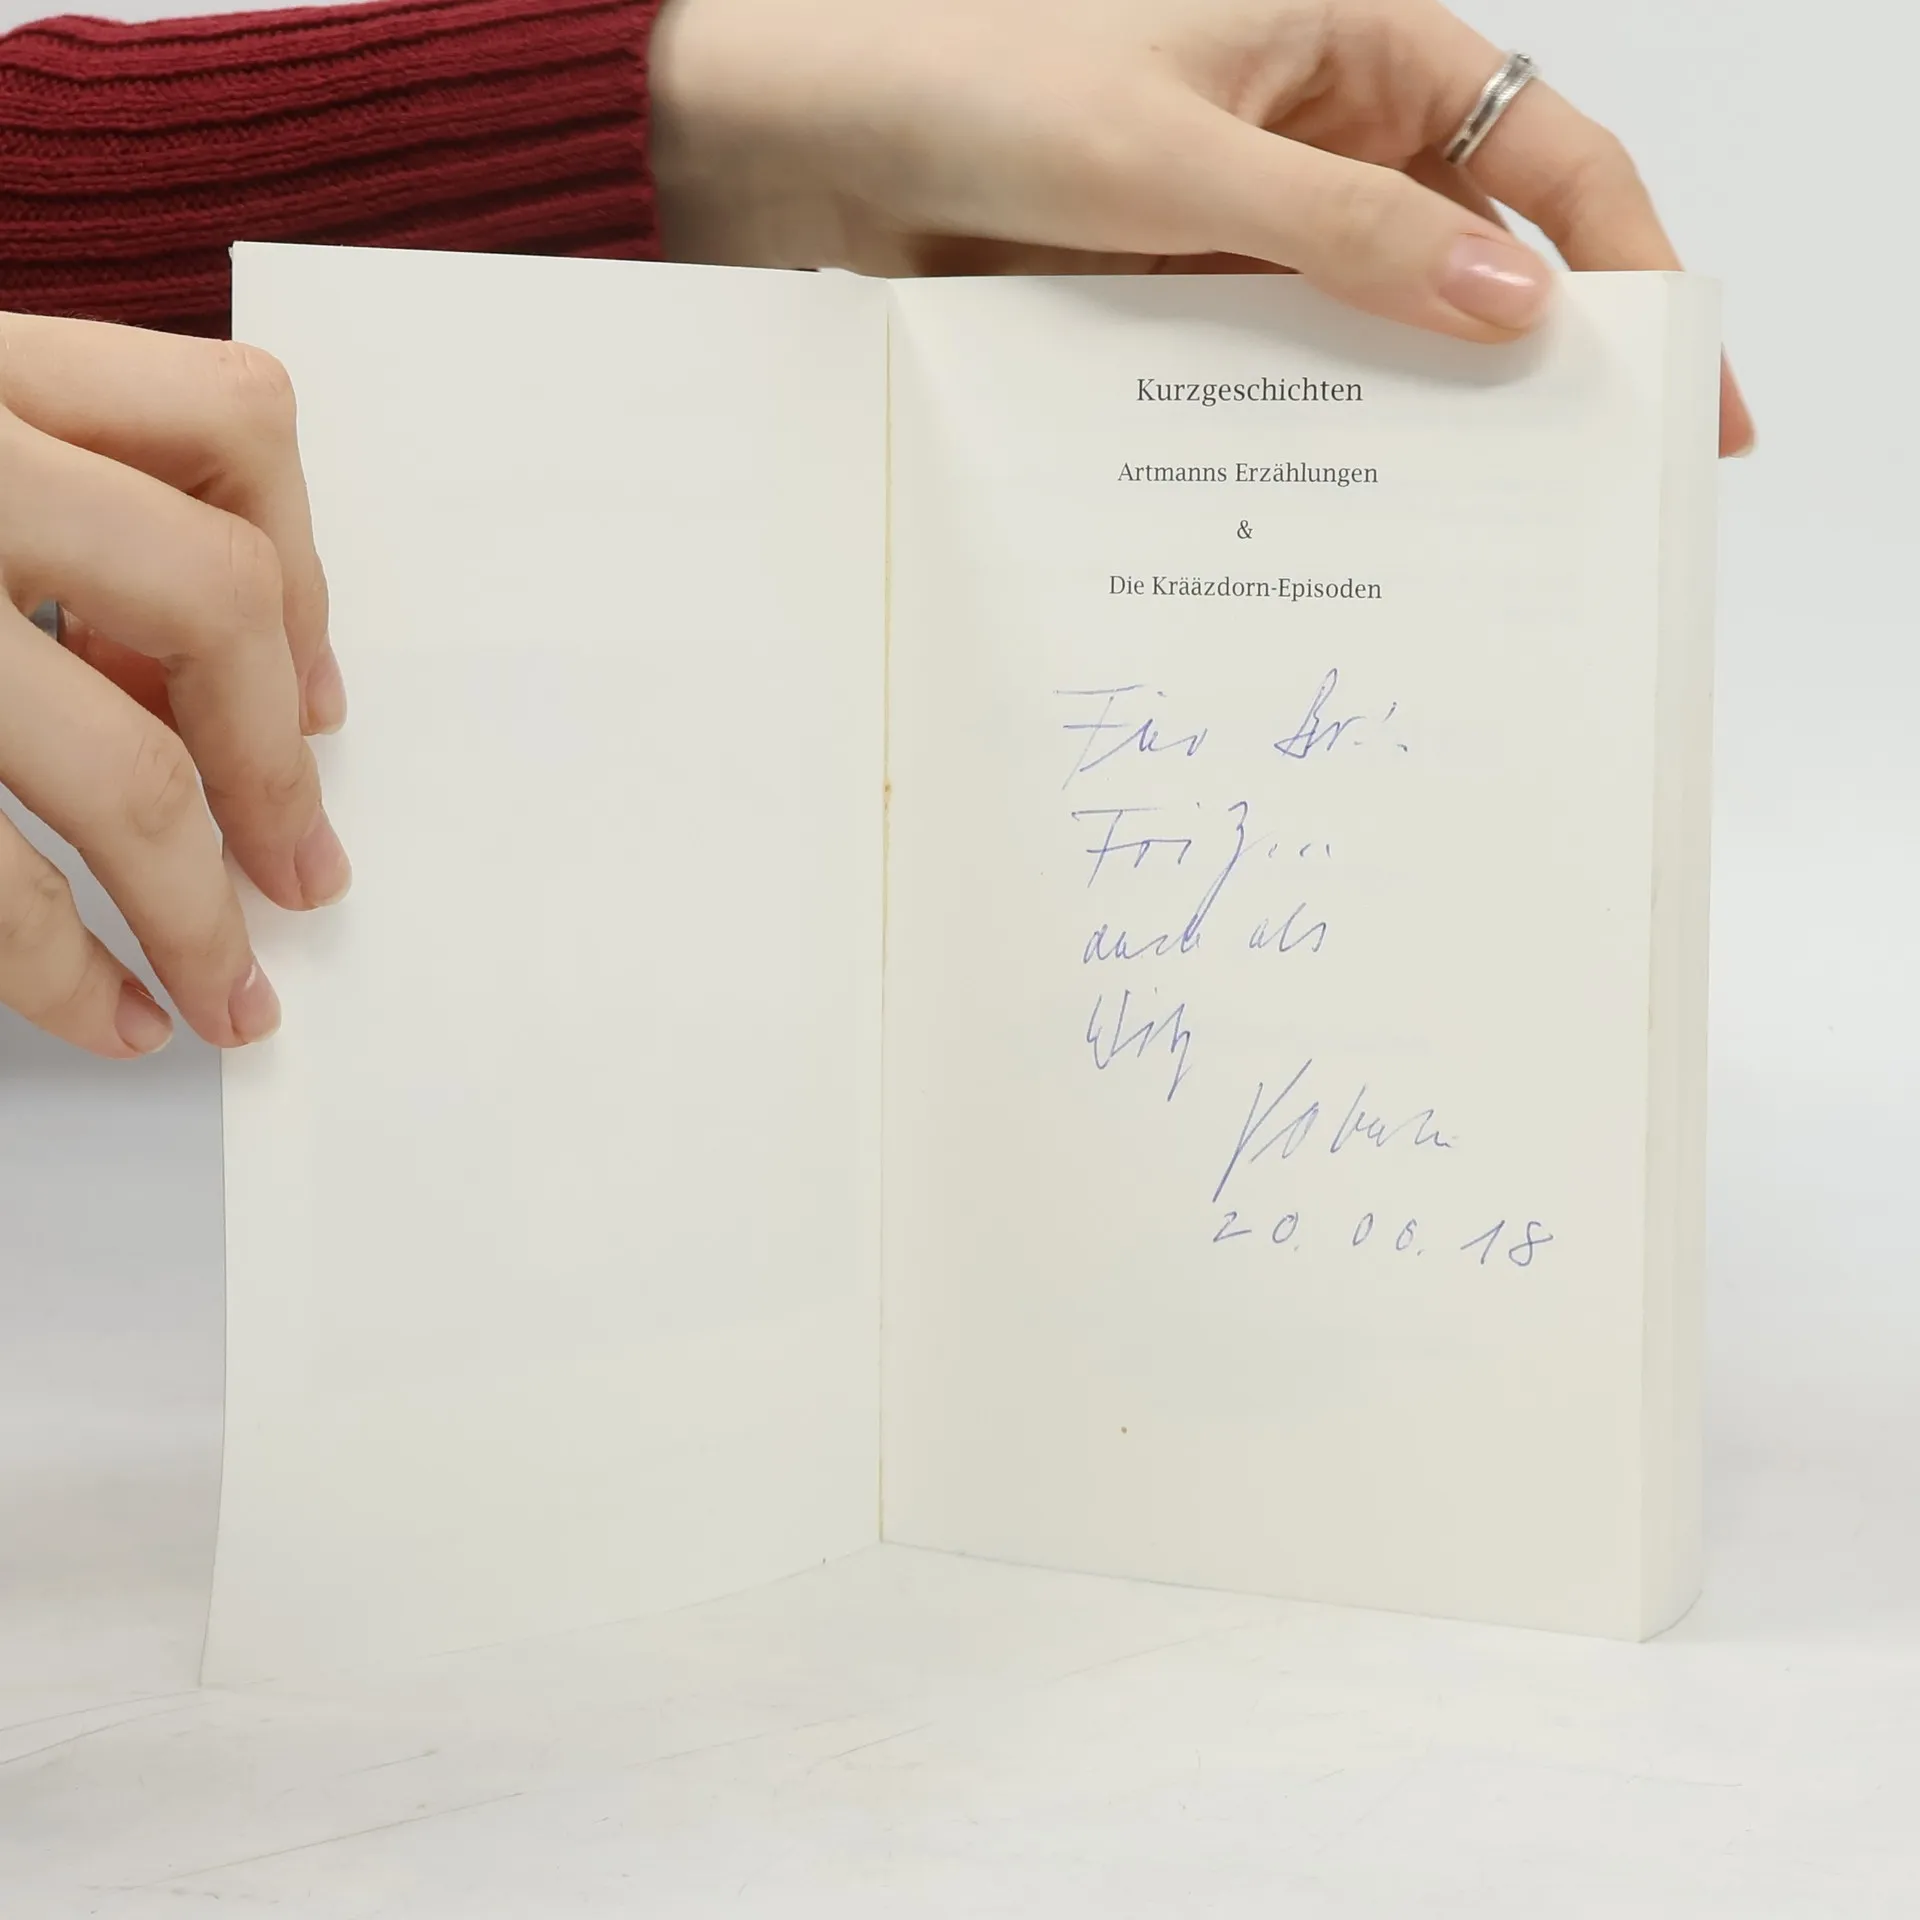 Kurzgeschichten
Artmanns Erzählungen
&
Die Krääzdorn-Episoden
Für Br..
Fri
auch als
Witz
20. 06. 18